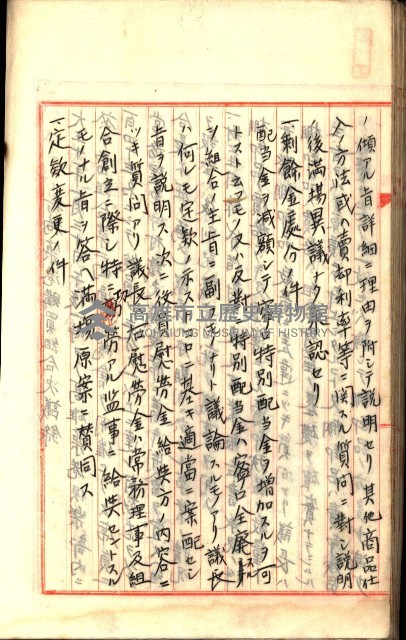 ノ傾アル旨詳細ニ理由ヲ附シテ説明セリ其他商品仕
入方法或ハ賣却利率等ニ関スル質問ニ對シ説明
ノ後満場異議ナク承認セリ
一剰餘金處分ノ件
配当金ヲ減額シテ寧ロ特別配当金ヲ増加スルヲ可
トスト云フモノ又ハ反對ニ特別配当金ハ寧口全廃
シ組合ノ主旨ニ副フベキモノナリト議論スルモノアリ議長
ハ何レモ定款ノ示ス所ニ基キ適當ニ案配セシ
旨ヲ説明ス次ニ役員慰労金給與方ノ内容ニ
ツキ質問アリ議長ハ右慰労金ハ常務理事及組
合創立ニ際シ特ニ功労アル監事ニ給與セントスル
モノナル旨ヲ答ヘ満場原案ニ賛同ス
一定款変更ノ件
高雄市立歷史博物館
KAOHSIUNG MUSEUM OF HISTORY